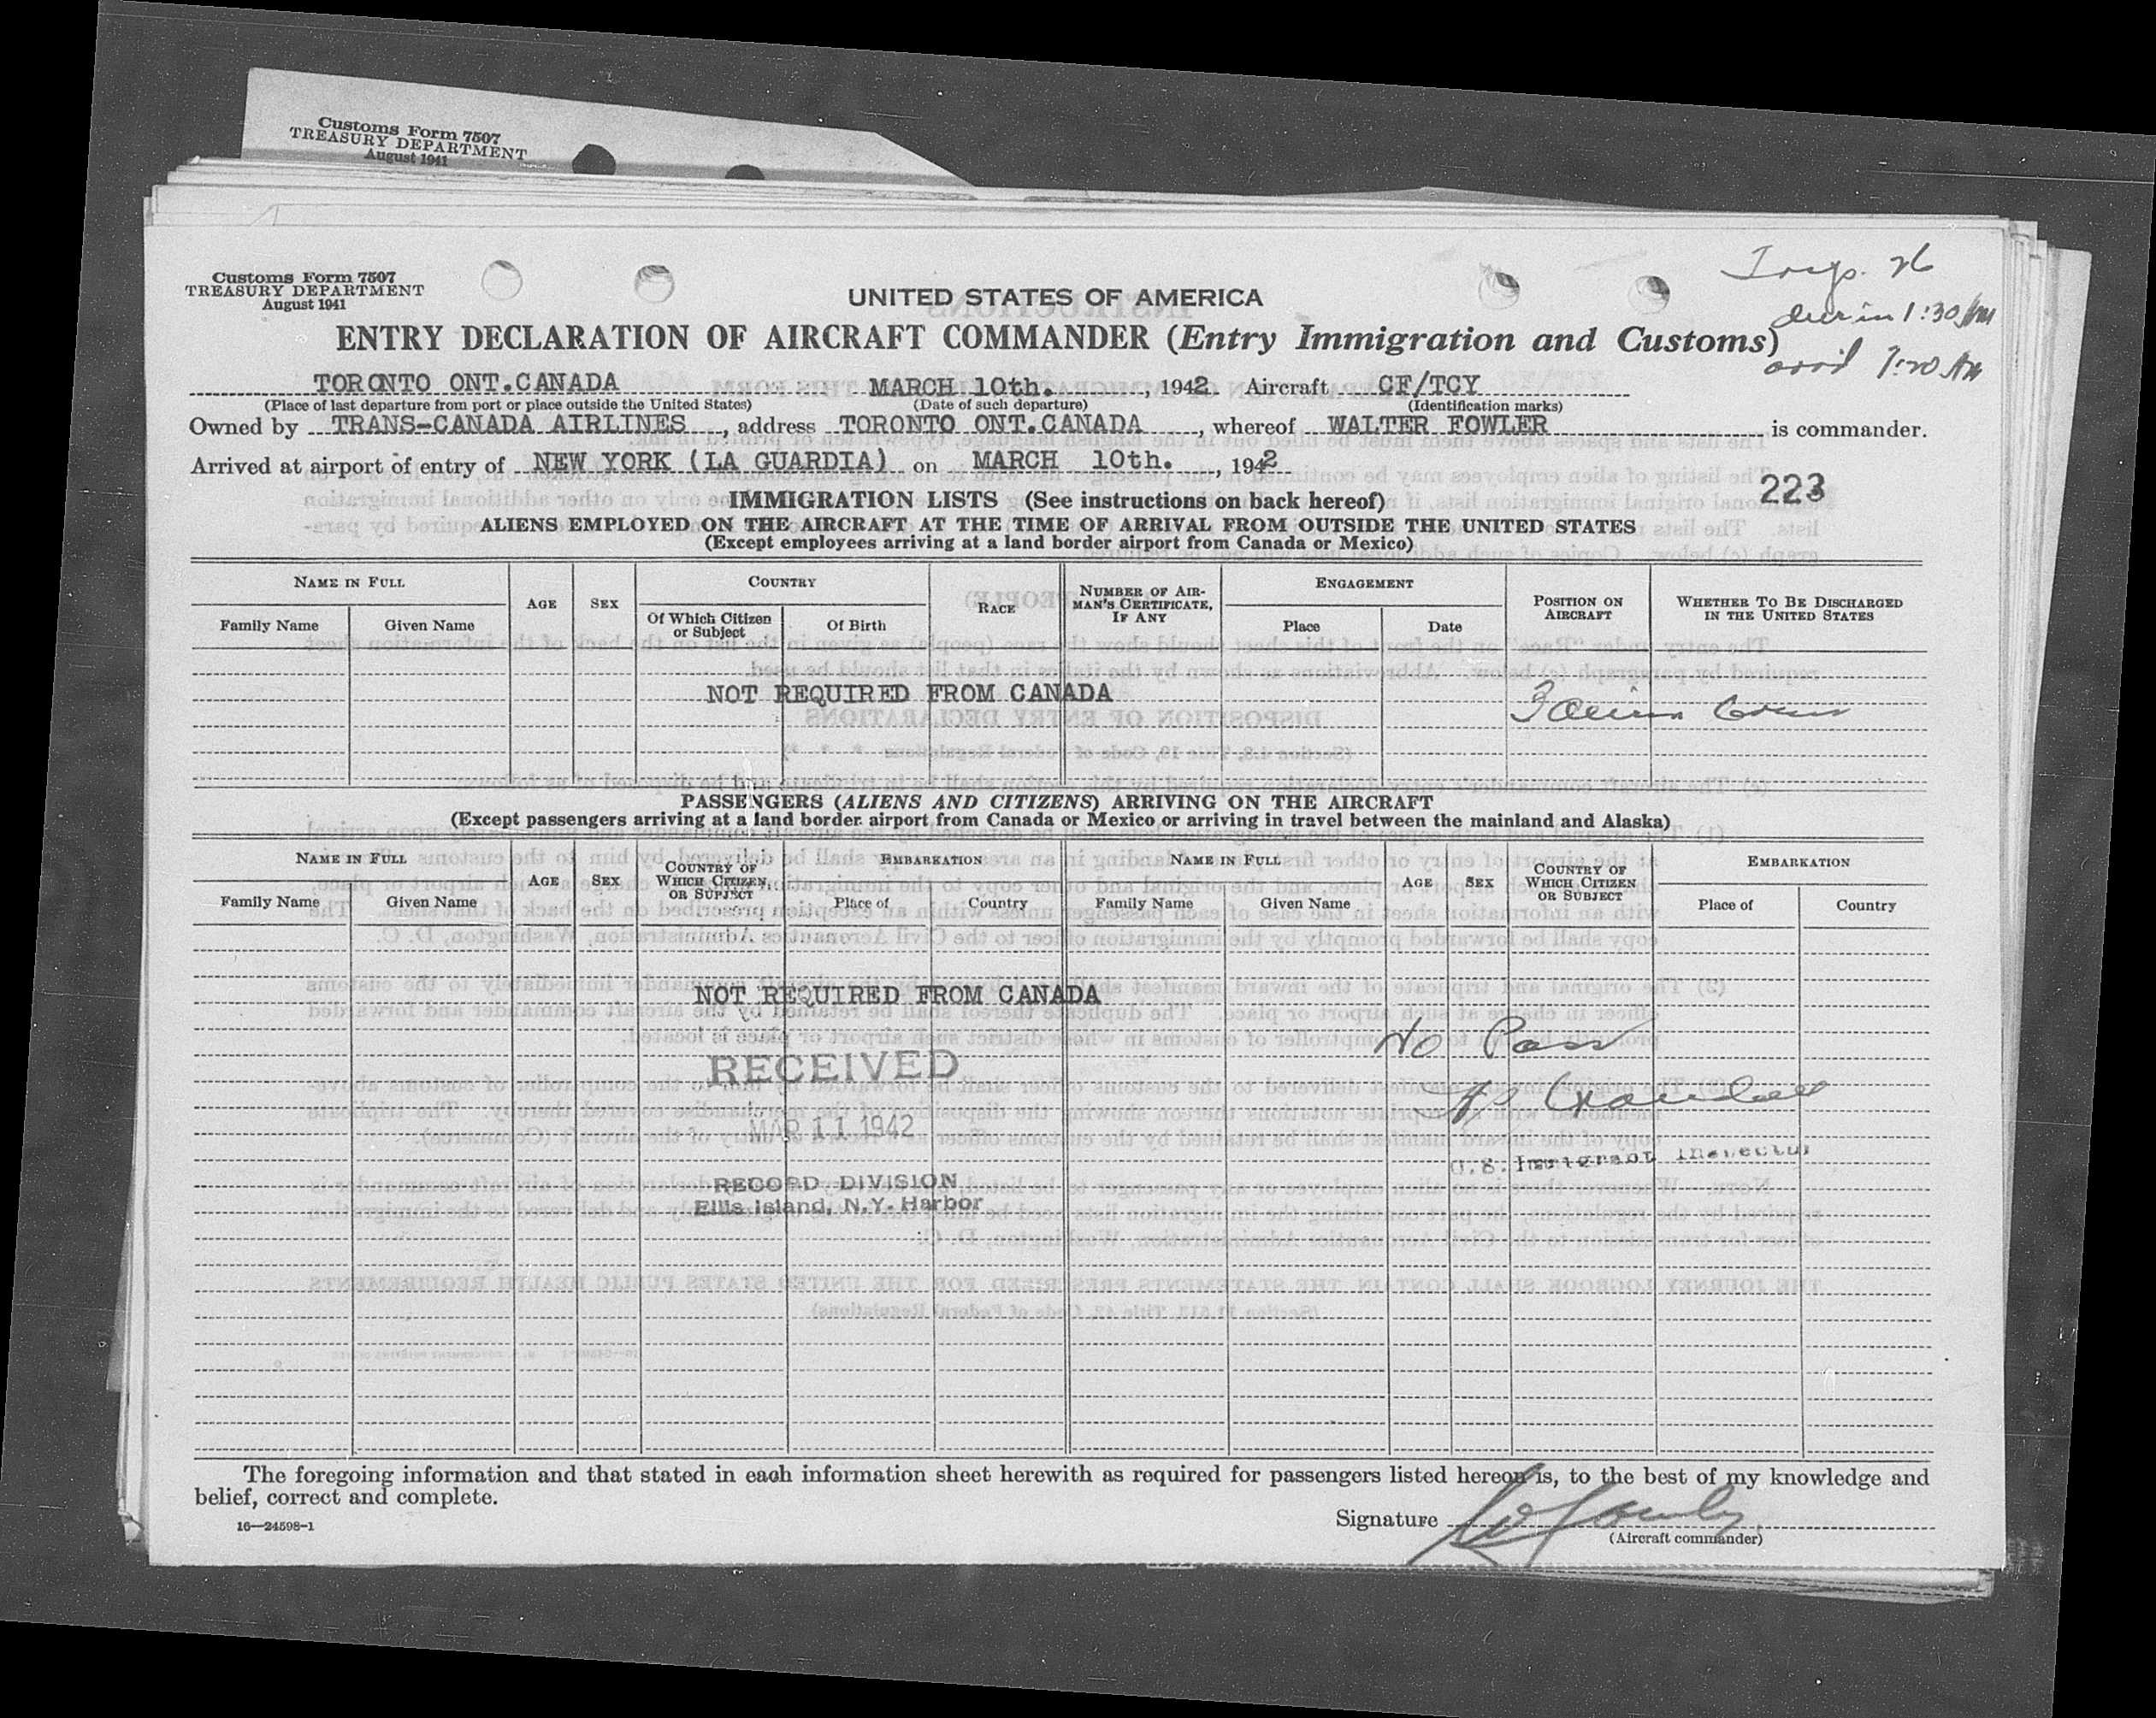 Customs Form 7507
TREASURY DEPARTMENT
August 1941
Customs Form 7507
TREASURY DEPARTMENT
August 1941
UNITED STATES OF AMERICA
ENTRY DECLARATION OF AIRCRAFT COMMANDER (Entry Immigration and Customs)
due in 1:30 AM
7:20 AM
TORONTO ONT.CANADA MARCH 10th., 1942 Aircraft CF/TCY
(Place of last departure from port or place outside the United States) (Date of such departure) (Identification marks)
Owned by TRANS-CANADA AIRLINES, address TORONTO ONT.CANADA, whereof WALTER FOWLER is commander.
Arrived at airport of entry of NEW YORK (LA GUARDIA) on MARCH 10th., 1942
223
IMMIGRATION LISTS (See instructions on back hereof)
ALIENS EMPLOYED ON THE AIRCRAFT AT THE TIME OF ARRIVAL FROM OUTSIDE THE UNITED STATES
(Except employees arriving at a land border airport from Canada or Mexico)
NAME IN FULL AGE SEX COUNTRY RACE NUMBER OF AIR-MAN'S CERTIFICATE, IF ANY ENGAGEMENT POSITION ON AIRCRAFT WHETHER TO BE DISCHARGED IN THE UNITED STATES
Family Name Given Name Of Which Citizen or Subject Of Birth Place Date
NOT REQUIRED FROM CANADA
3 Alien Crew
PASSENGERS (ALIENS AND CITIZENS) ARRIVING ON THE AIRCRAFT
(Except passengers arriving at a land border airport from Canada or Mexico or arriving in travel between the mainland and Alaska)
NAME IN FULL AGE SEX COUNTRY OF WHICH CITIZEN OR SUBJECT EMBARKATION NAME IN FULL AGE SEX COUNTRY OF WHICH CITIZEN OR SUBJECT EMBARKATION
Family Name Given Name Place of Country Family Name Given Name Place of Country
NOT REQUIRED FROM CANADA
No Pass
RECEIVED
MAR 11 1942
U.S. Immigrant Inspector
RECORD DIVISION
Ellis Island, N.Y. Harbor
The foregoing information and that stated in each information sheet herewith as required for passengers listed hereon is, to the best of my knowledge and
belief, correct and complete.
16—24598-1
Signature
(Aircraft commander)